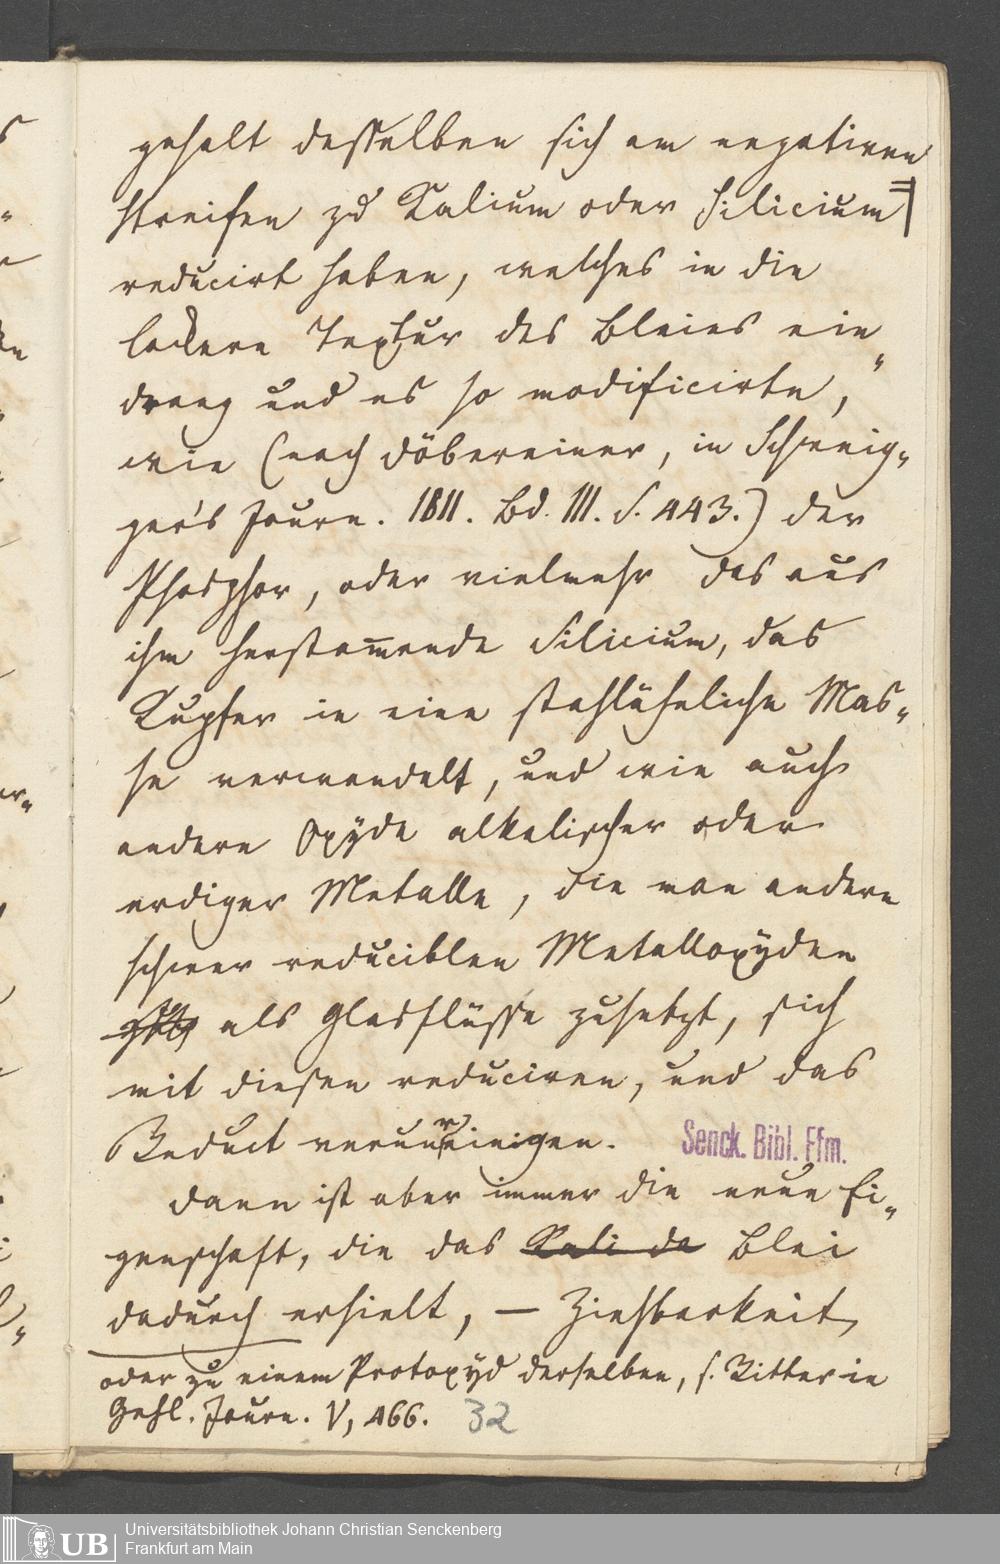 gehalt desselben sich am negativen
Streifen zu Kalium oder Silicium
reducirt haben, welches in die
lockere Textur des Bleies ein„
drang und es so modificirte,
wie (nach Döbereiner, in Schweig„
ger's Journ. 1811. Bd. III. S. 443.) der
Phosphor, oder vielmehr das aus
ihm herstam̅ende Silicium, das
Kupfer in eine stahlähnliche Mas„
se verwandelt, und wie auch
andere Oxÿde alkalischer oder
erdiger Metalle, die man andern
schwer reduciblen Metalloxÿden
als Glasflüsse zusetzt, sich
mit diesen reduciren, und das
Reduct verunreinigen.
Senck. Bibl. Ffm.
Dann ist aber immer die neue Ei„
genschaft, die das Kali da Blei
dadurch erhielt, — Ziehbarkeit,
oder zu einem Protoxÿd derselben, s. Ritter in
Gehl. Journ. V, 466.
32
UB
Universitätsbibliothek Johann Christian Senckenberg
Frankfurt am Main